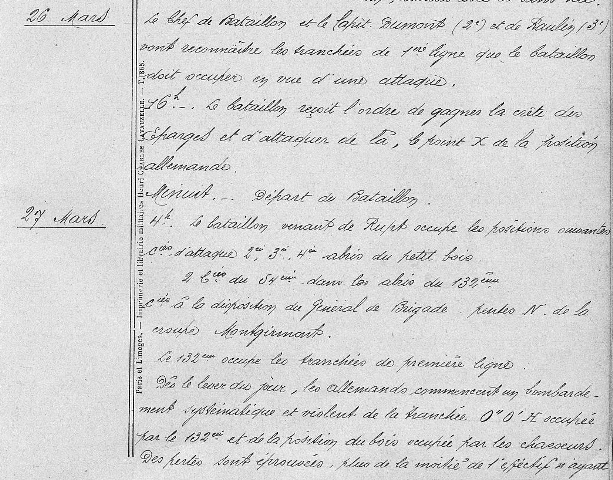 26 Mars
Le Chef de Bataillon et le Capit. Dumont (2e) et de Raulin (3e)
vont reconnaître les tranchées de 1ère ligne que le bataillon
doit occuper en vue d'une attaque.
16h... Le bataillon reçoit l'ordre de gagner la crête des
Eparges et d'attaquer de là, le point X de la position
allemande.
Minuit... Départ du Bataillon.
27 Mars
4h. Le bataillon venant de Rupt occupe les positions suivantes
Cies d'attaque 2e, 3e, 4e abris du petit bois
2 Cies du 54ème dans les abris du 132ème
Cies à la disposition du Général de Brigade pentes N. de la
croupe Montgirmont.
Le 132ème occupe les tranchées de première ligne.
Dès le lever du jour, les allemands commencent un bombarde-
ment systématique et violent de la tranchée O" O' H occupée
par le 132ème et de la position du bois occupée par les chasseurs.
Des pertes sont éprouvées, plus de la moitié de l'effectif ayant
Paris et Limoges. — Imprimerie et librairie militaires Henri CHARLES-LAVAUZELLE. —